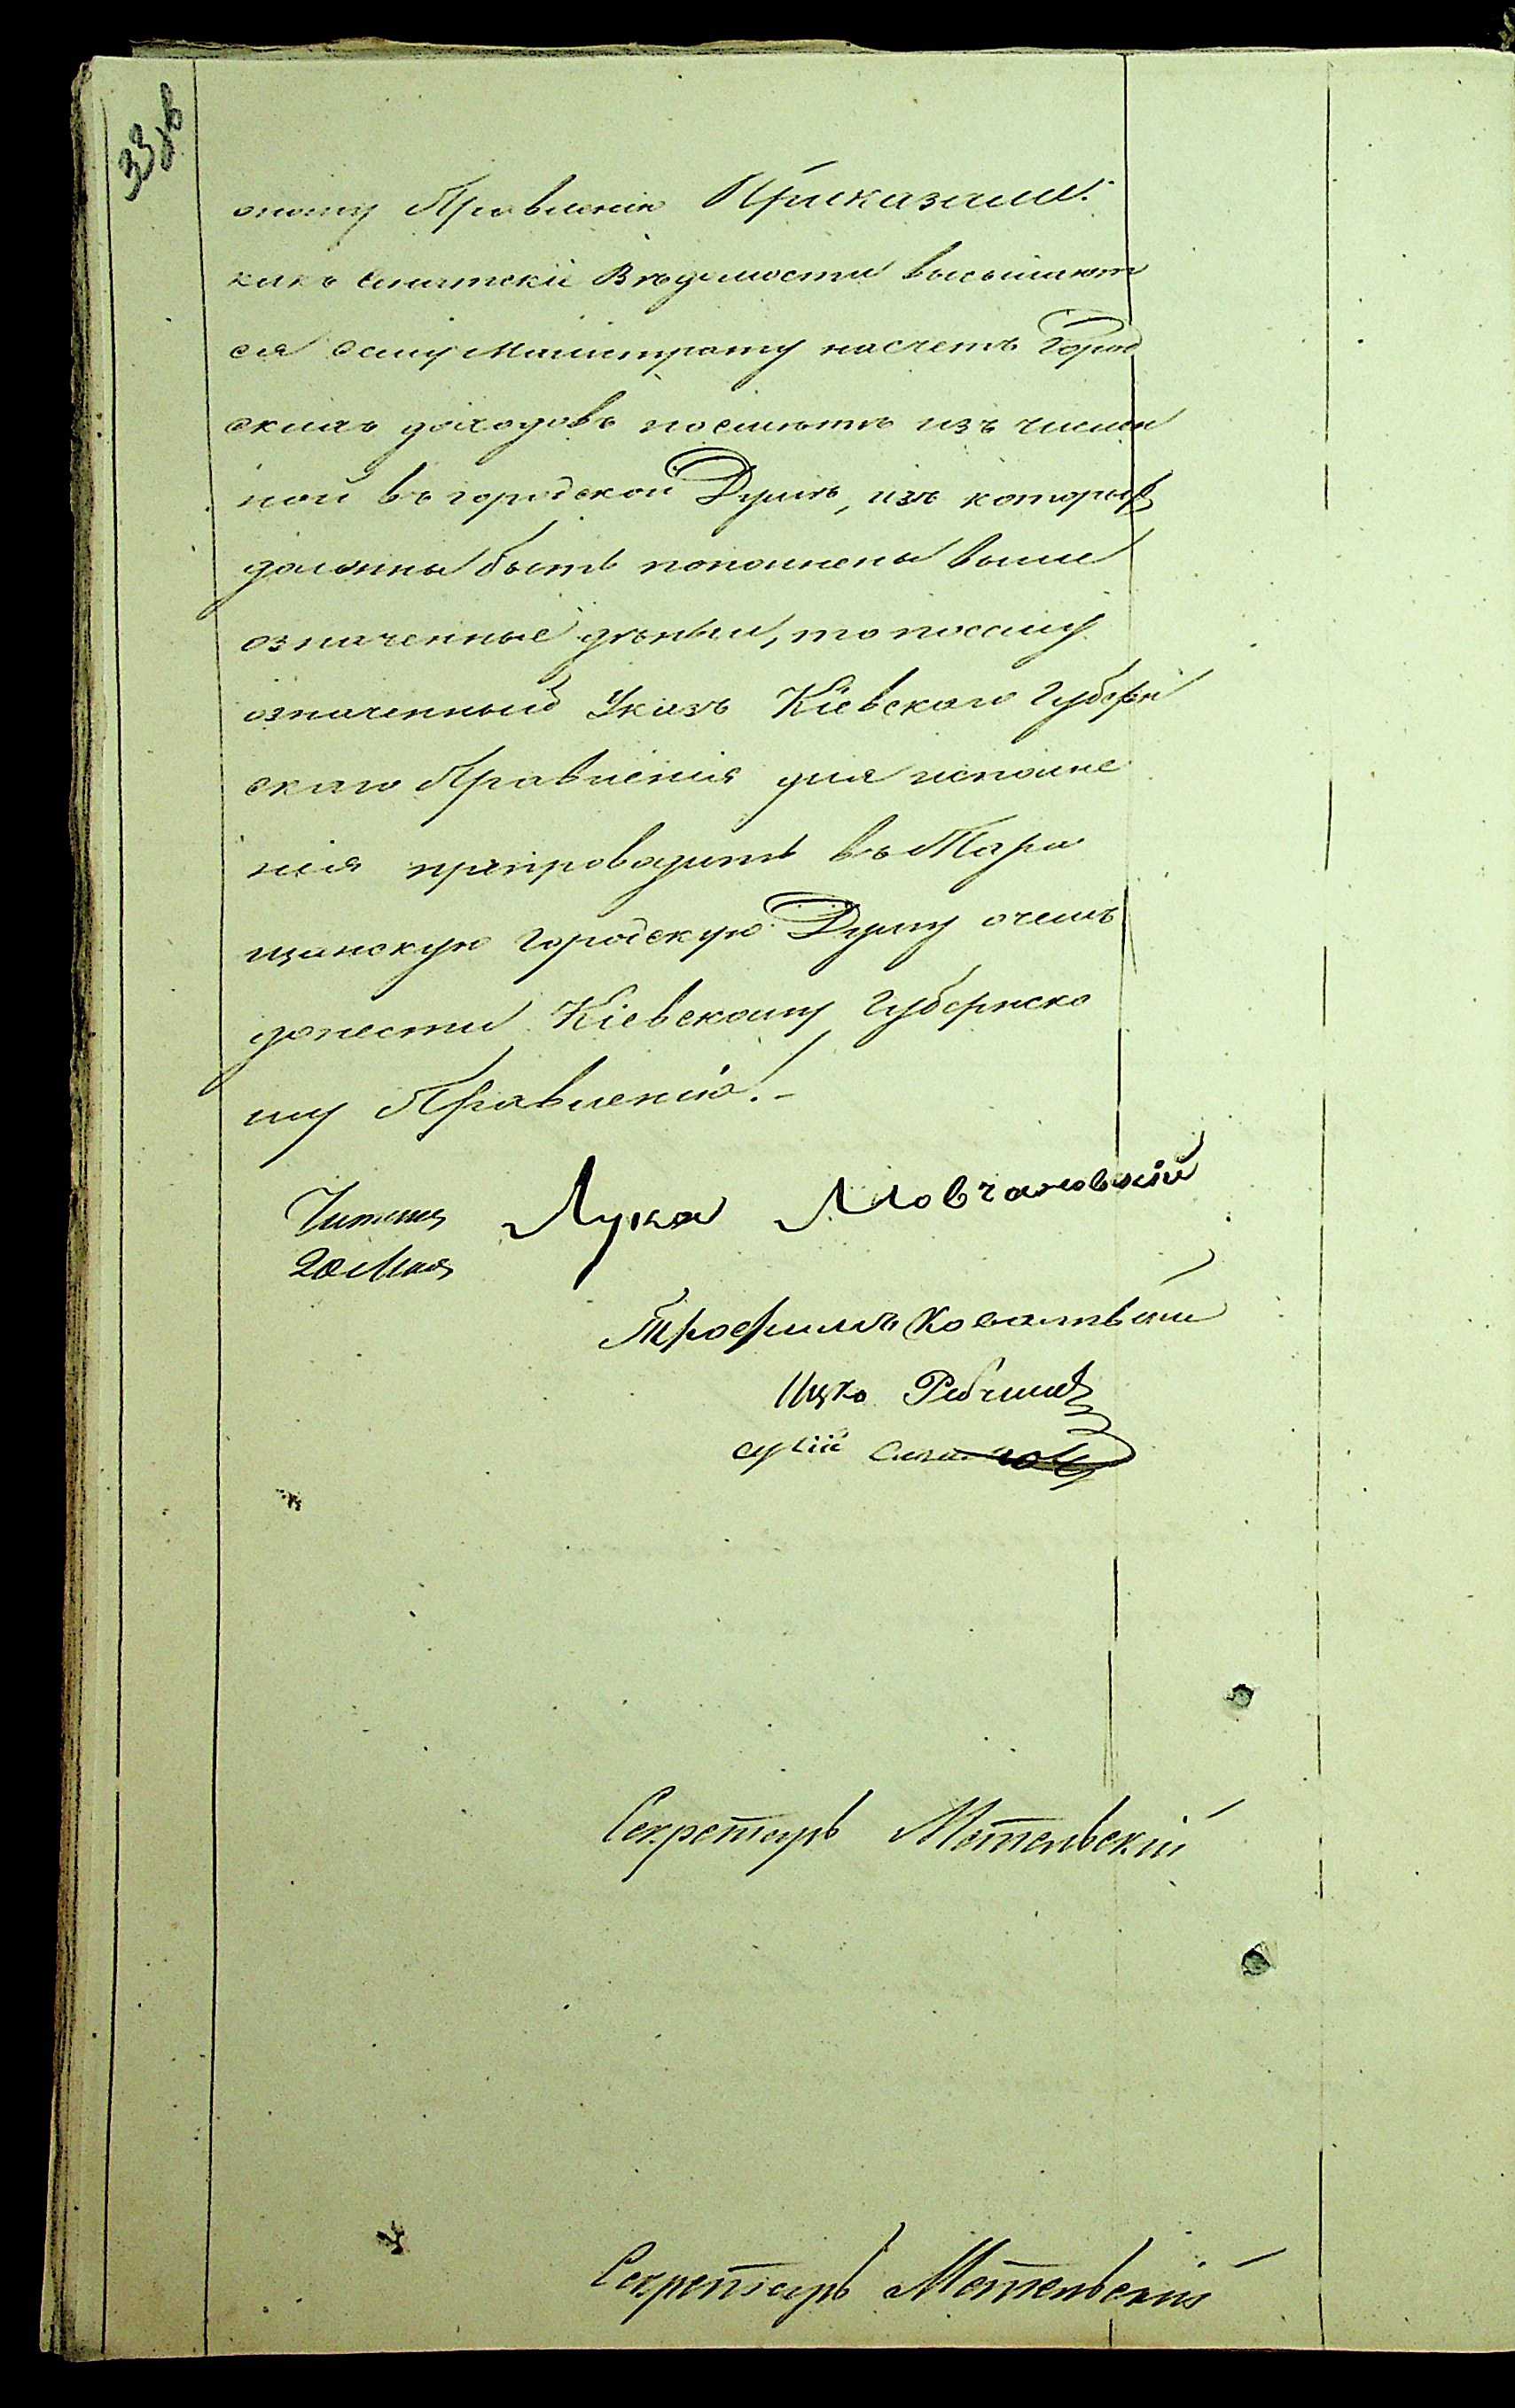 оному Правленію Приказали:
какъ Сенатскіе Вѣдомости высылают
ся сему Магистрату насчетъ Город
скихъ доходовъ посметѣ изъ числен
ной въ городской Думѣ, изъ которых
должны быть пополнены выше
означенные деньги, то посему
означенный Указъ Кіевскаго Губерн
скаго Правленія для исполне
нія препроводить въ Тара
щанскую городскую Думу о чемъ
донести Кіевскому Губернско
му Правленію. -
Читалъ Лука Мовчановскій
20 Мая
Трофимъ
Ицко
Секретарь Мотельскій
Секретарь Мотельскій